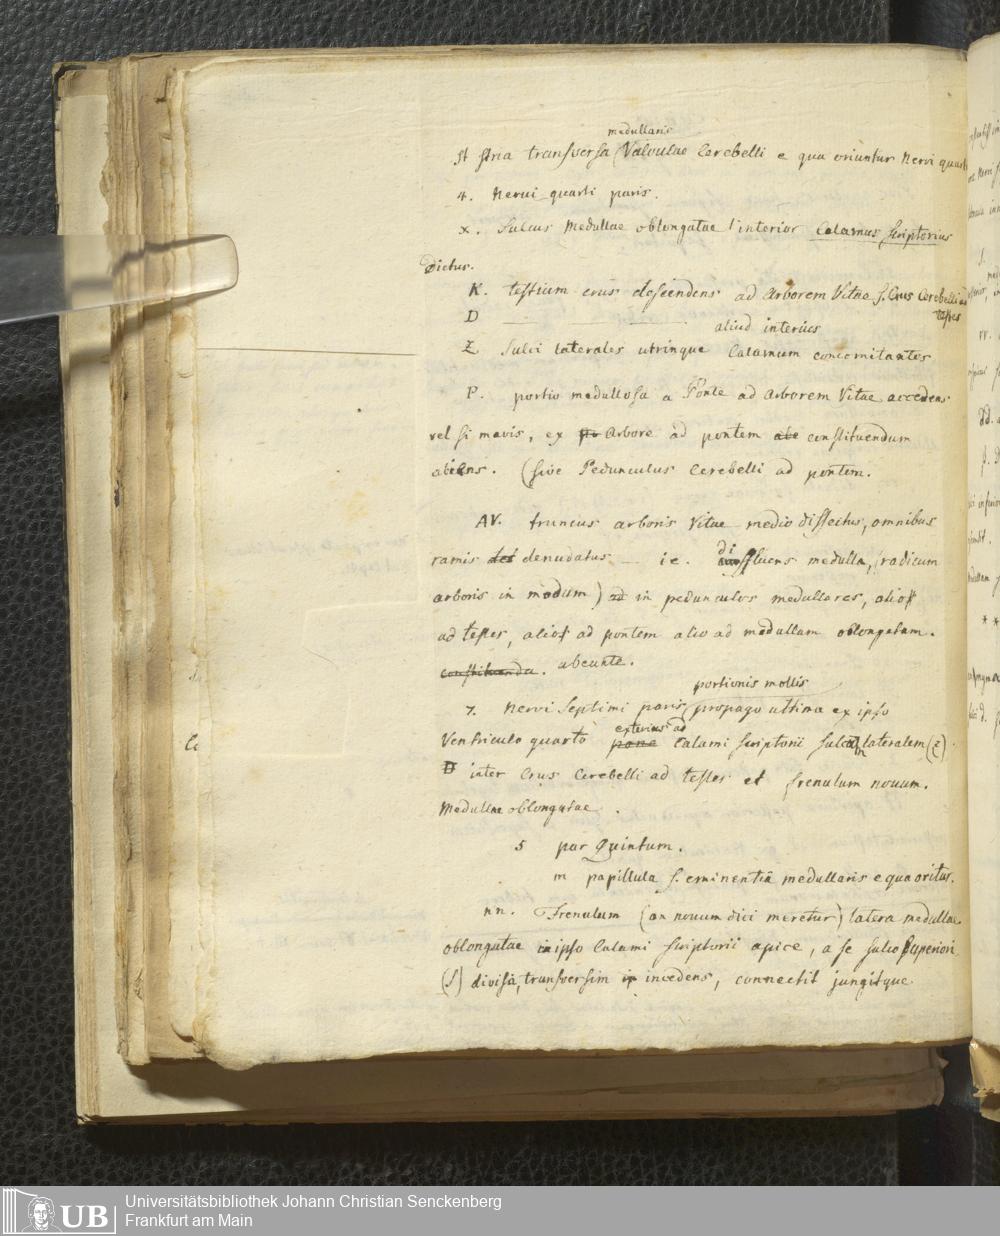 medullaris
St stria transversa (Valvulae Cerebelli e qua oriuntur Nervi quarti
4. Nervi quarti paris.
x. Sulcus Medullae oblongatae interior Calamus scriptorius
Dictus.
K. testium crus descendens ad Arborem Vitae s. Crus Cerebelli ad
testes
D — — aliud interius
Z Sulci laterales utrinque Calamum concomitantes
P. portio medullosa a Ponte ad Arborem Vitae accedens
vel si mavis, ex Arbore ad pontem constituendum
abiens. (sive Pedunculus Cerebelli ad pontem.
AV. truncus arboris Vitae medio dissectus, omnibus
ramis denudatus — ie. diffluens medulla, (radicum
arboris in modum) in pedunculos medullares, alios
ad testes, alios ad pontem alio ad medullam oblongatam.
constituenda. abeunte.
portionis mollis
7. Nervi Septimi paris propago ultima ex ipso
exterius ad
Ventriculo quarto pone Calami scriptorii sulcum lateralem (Z).
D inter Crus Cerebelli ad testes et frenulum novum.
Medullae oblongatae.
5 par Quintum.
m papillula s. eminentia medullaris e qua oritur.
nn. Frenulum (an novum dici meretur) latera medullae
oblongatae in ipso Calami scriptorii apice, a se sulco superiori
(S) divisa, transversim incedens, connectit jungitque
Universitätsbibliothek Johann Christian Senckenberg
Frankfurt am Main
UB